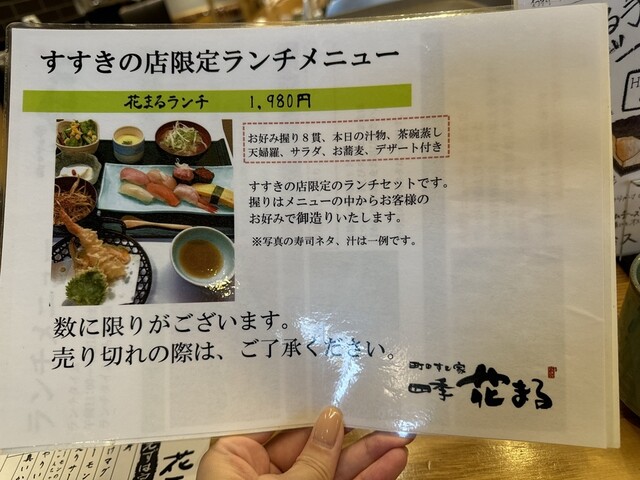 すすきの店限定ランチメニュー
花まるランチ 1,980円
お好み握り８貫、本日の汁物、茶碗蒸し
天婦羅、サラダ、お蕎麦、デザート付き
すすきの店限定のランチセットです。
握りはメニューの中からお客様の
お好みで御造りいたします。
※写真の寿司ネタ、汁は一例です。
数に限りがございます。
売り切れの際は、ご了承ください。
町のすし家
四季 花まる